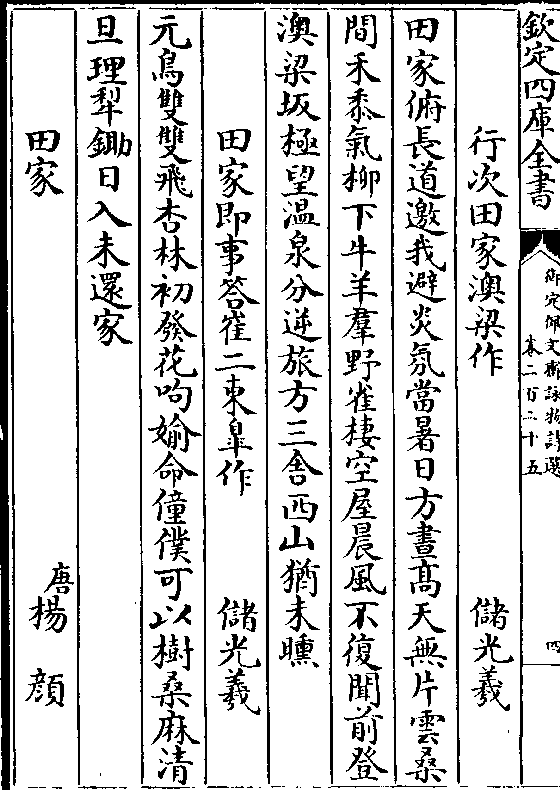 欽定四庫全書
御定佩文齋詠物詩選
卷二百二十五
四
行次田家澳梁作 儲光羲
田家俯長道邀我避炎氛當暑日方晝高天無片雲桑
間禾黍氣柳下牛羊羣野雀棲空屋晨風不復聞前登
澳梁坂極望温泉分逆旅方三舍西山猶未曛
田家即事答崔二東皐作 儲光羲
元鳥雙雙飛杏林初發花呴媮命僮僕可以樹桑麻清
旦理犂鋤日入未還家
田家 唐楊顔